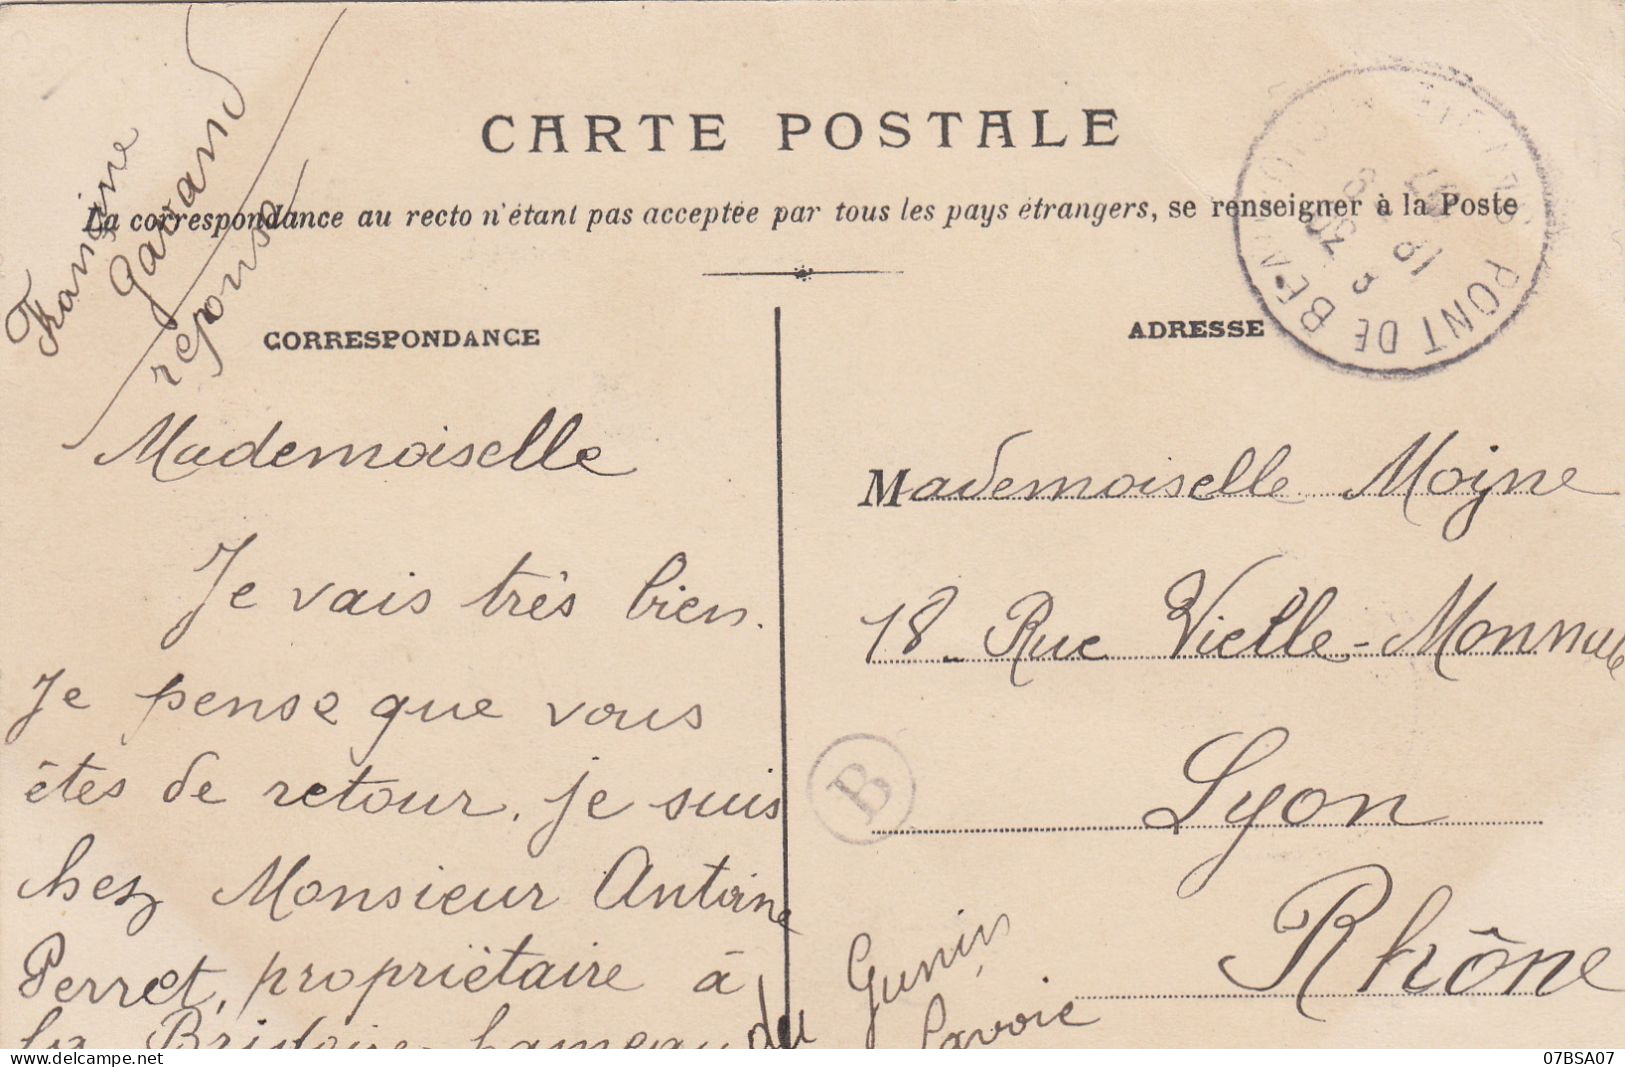 CARTE POSTALE
La correspondance au recto n'étant pas acceptée par tous les pays étrangers, se renseigner à la Poste
Francine
Gavand
réponse
CORRESPONDANCE
Mademoiselle
Je vais très bien.
Je pense que vous
êtes de retour. Je suis
chez Monsieur Antoine
Perret, propriétaire à
la Bridoire hameau du
Gunin
Savoie
ADRESSE
PONT DE BEAUVOISIN
Mademoiselle Moyne
18 - Rue Vielle-Monnaie
B
Lyon
Rhône
07BSA07